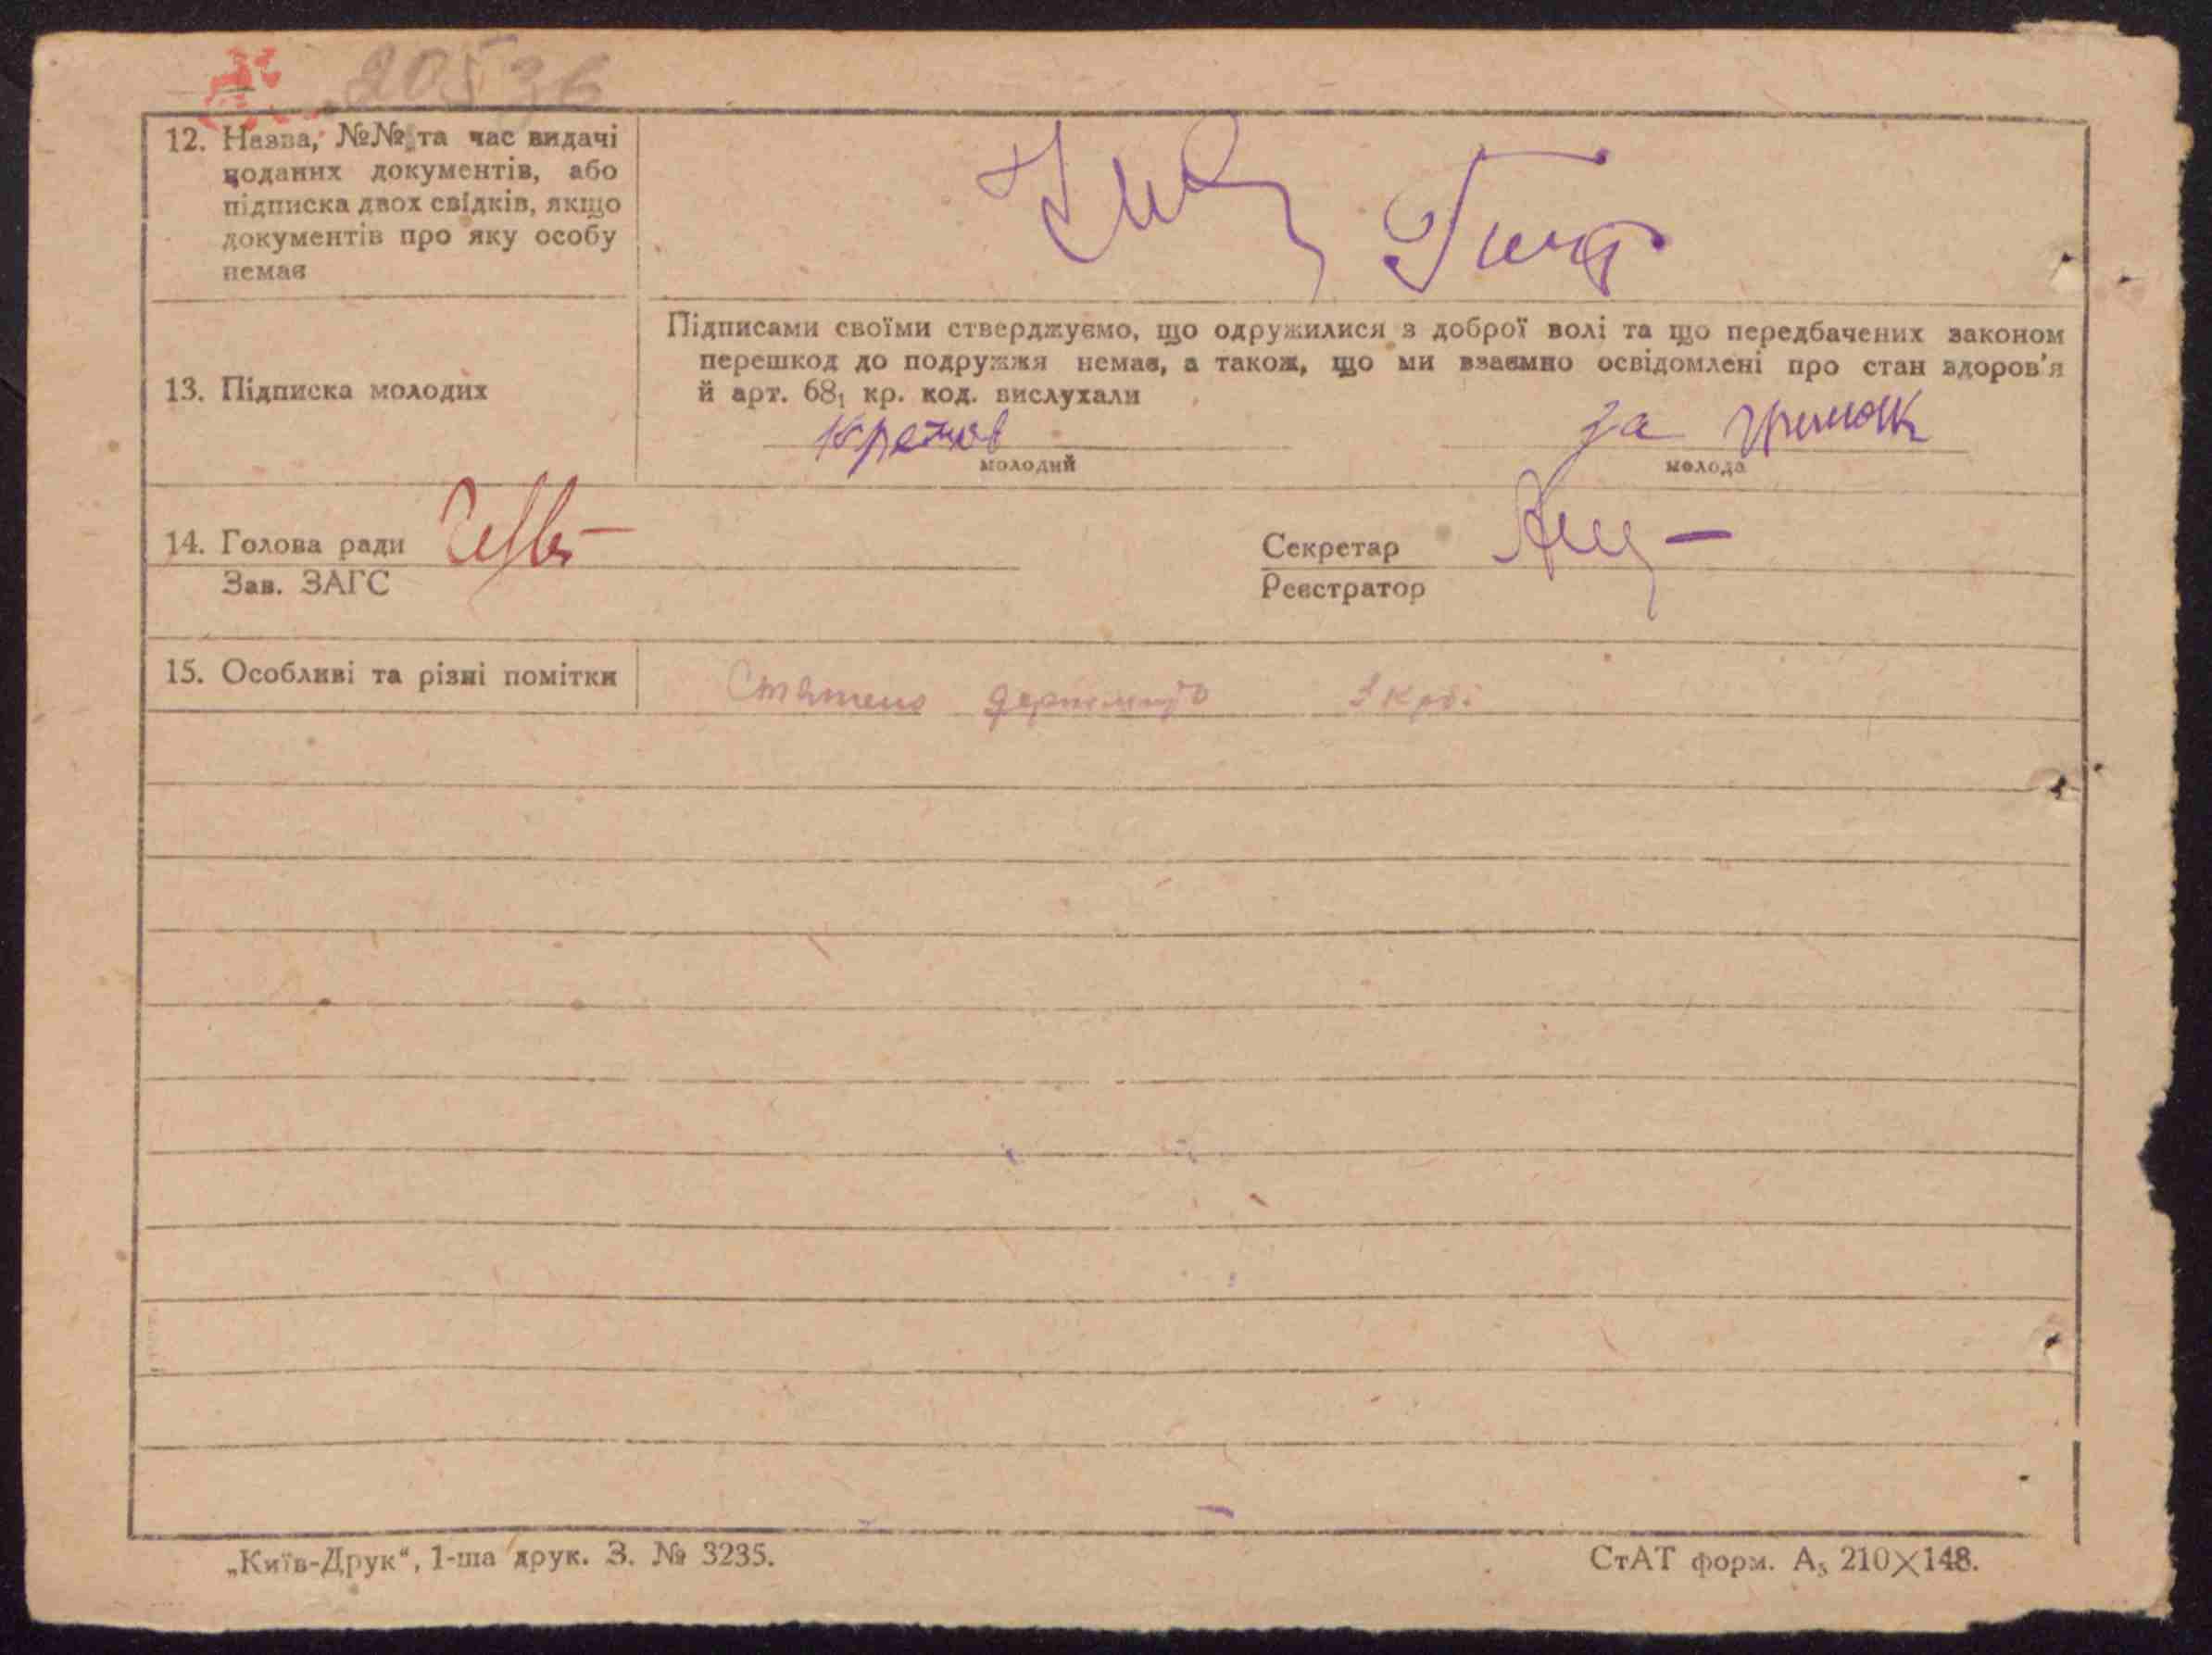 20536
12. Назва, №№ та час видачі
поданих документів, або
підписка двох свідків, якщо
документів про яку особу
немає
Підписами своїми стверджуємо, що одружилися з доброї волі та що передбачених законом
перешкод до подружжя немає, а також, що ми взаємно освідомлені про стан здоров'я
й арт. 68₁ кр. код. вислухали
13. Підписка молодих
за
молодий
молода
14. Голова ради
Зав. ЗАГС
Секретар
Реєстратор
15. Особливі та різні помітки
держмито 3 крб.
„Київ-Друк“, 1-ша друк. З. № 3235.
СтАТ форм. А₅ 210×148.